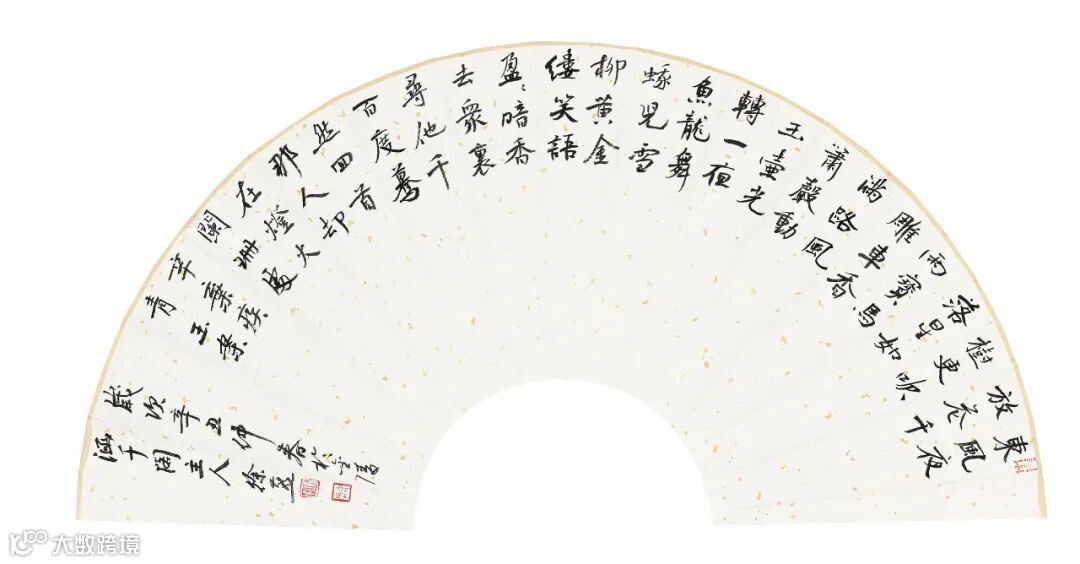 東風夜
放花千
樹更吹
落星如
雨寶馬
雕車香
滿路風
簫聲動
玉壺光
轉一夜
魚龍舞
蛾兒雪
柳黄金
縷笑語
盈〻暗香
去衆裏
尋他千
百度驀
然回首
那人却
在燈火
闌珊處
辛棄疾
青玉案
歲次辛丑仲春於
涵千閣主人徐
大数跨境